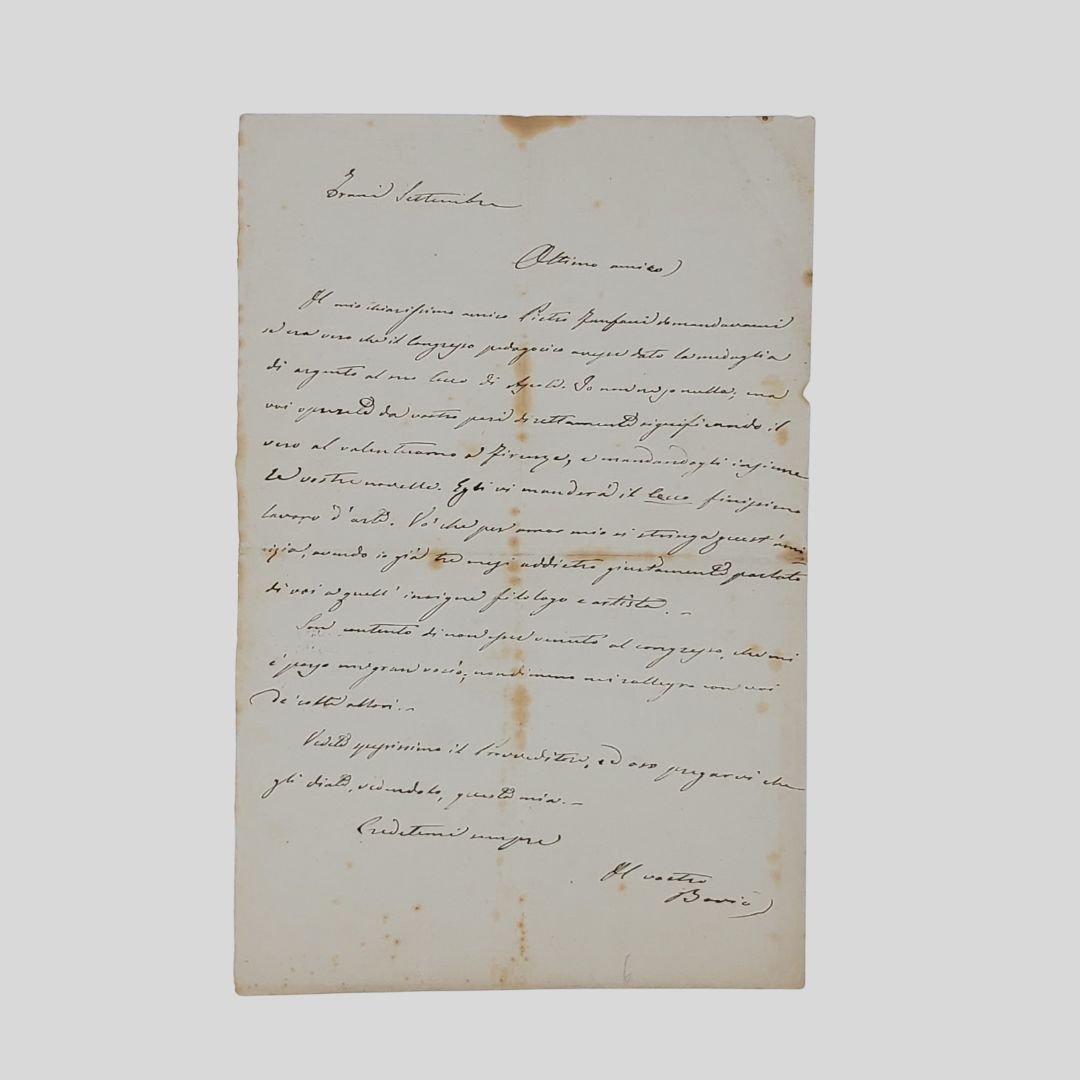 Trani Settembre
Ottimo amico
Il mio chiarissimo amico Pietro Fanfani domandavami
se era vero che il Congresso pedagogico avesse dato la medaglia
di argento al suo Cecco di Ascoli. Io non ne so nulla; ma
voi opererete da vostro pari direttamente significando il
vero al valentuomo a Firenze, e mandandogli insieme
le vostre novelle. Egli vi manderà il Cecco finissimo
lavoro d'arte. Vo' che per amor mio si stringa quest'ami
cizia, avendo io già tre mesi addietro giustamente parlato
di voi a quell'insigne filologo e artista. _
Son contento di non esser venuto al congresso, che mi
è parso un gran vocio; nondimeno mi rallegro con voi
de' còlti allori. _
Vedete spessissimo il Provveditore, ed oso pregarvi che
gli diate, vedendolo, questa mia. _
Credetemi sempre
Il vostro
Bovio
6